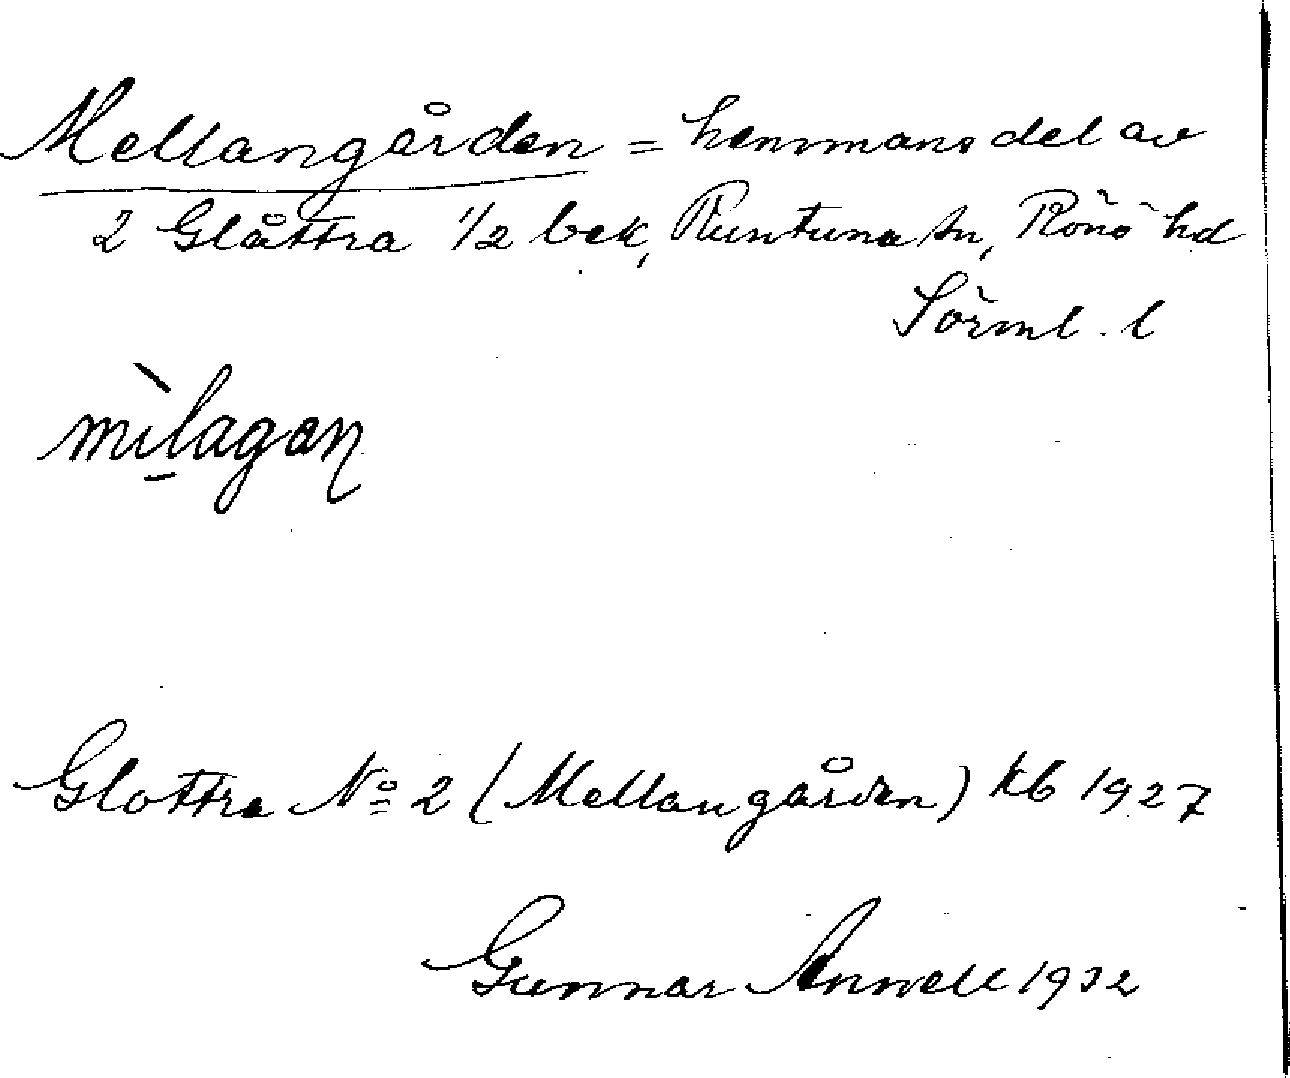 Mellangården = hemmansdel av
2 Glåttra 1/2 bek, Runtuna sn, Rönö hd
Sörml. l
mìlagaṇ
Glottra No 2 (Mellangården) kb 1927
Gunnar Annell 1932